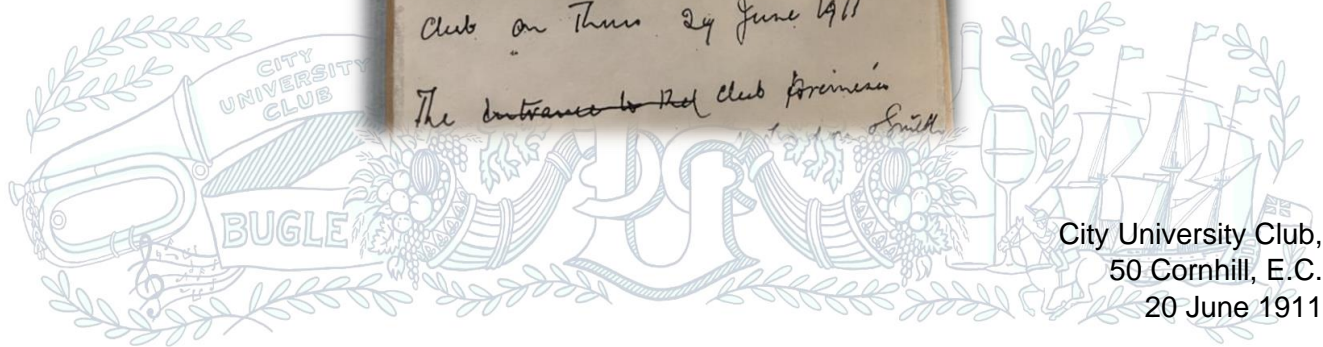 Club on Thurs 29 June 1911
The entrance to the Club premises
CITY
UNIVERSITY
CLUB
BUGLE
City University Club,
50 Cornhill, E.C.
20 June 1911